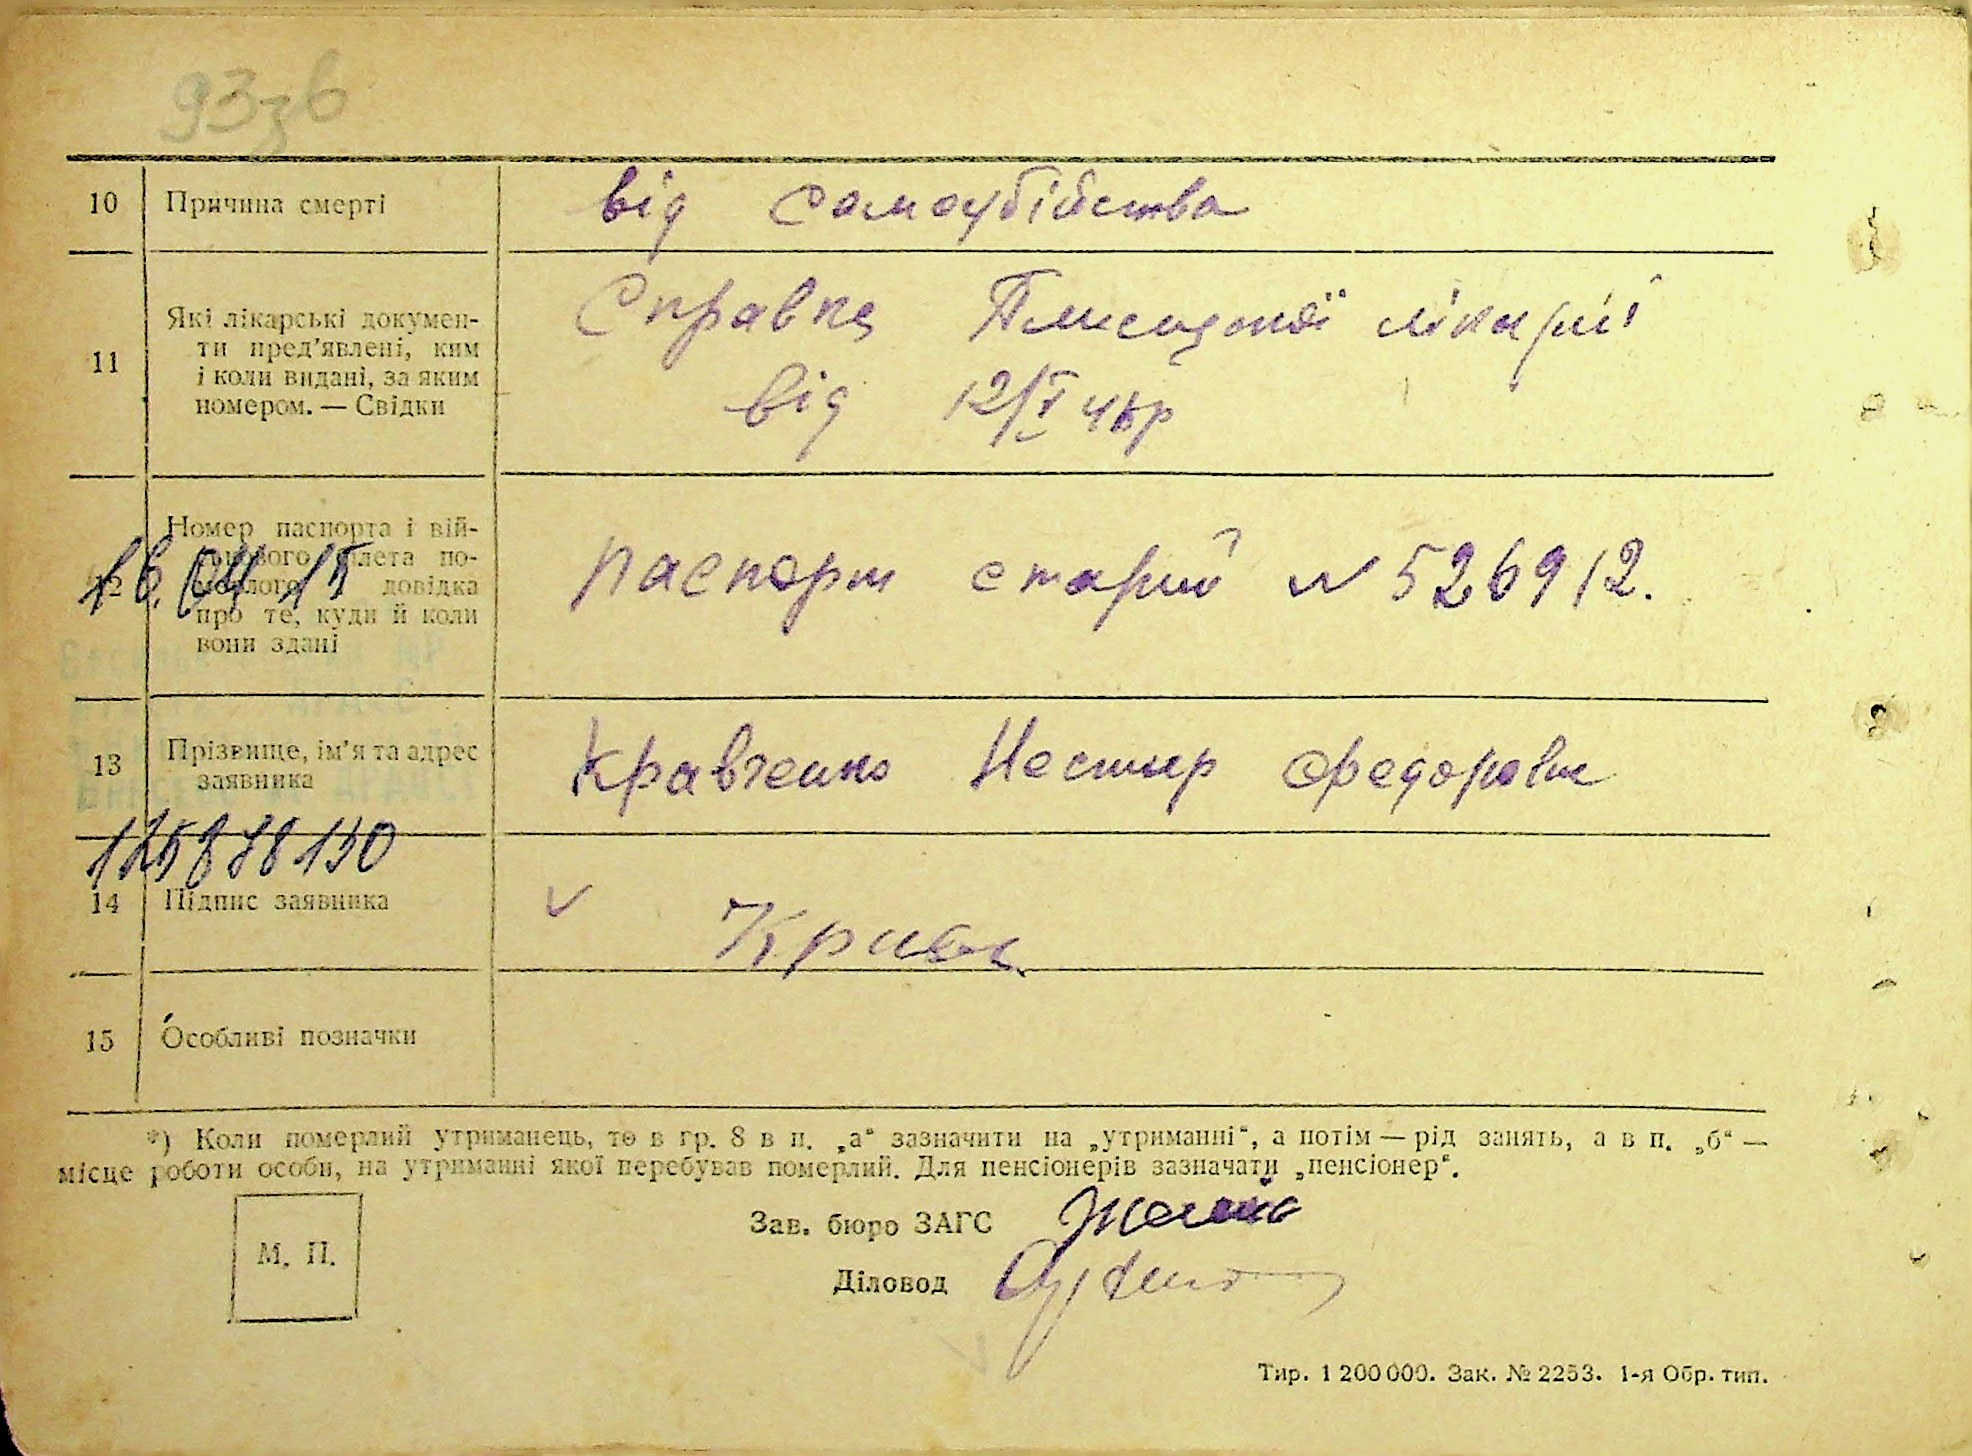 93зв
10 Причина смерті від самоубійства
11 Які лікарські докумен-
ти пред'явлені, ким
і коли видані, за яким
номером. — Свідки
Справка лікарні
від 12/V
12 Номер паспорта і вій-
ськового білета по-
мерлого, довідка
про те, куди й коли
вони здані
паспорт старий № 526912.
16.04.15
13 Прізвище, ім'я та адрес
заявника
Кравченко Нестир Федорович
125878130
14 Підпис заявника v Кравч
15 Особливі позначки
*) Коли померлий утриманець, то в гр. 8 в п. „а“ зазначити на „утриманні“, а потім — рід занять, а в п. „б“ —
місце роботи особи, на утриманні якої перебував померлий. Для пенсіонерів зазначати „пенсіонер“.
М. П.
Зав. бюро ЗАГС
Діловод
Тир. 1 200 000. Зак. № 2253. 1-я Обр. тип.